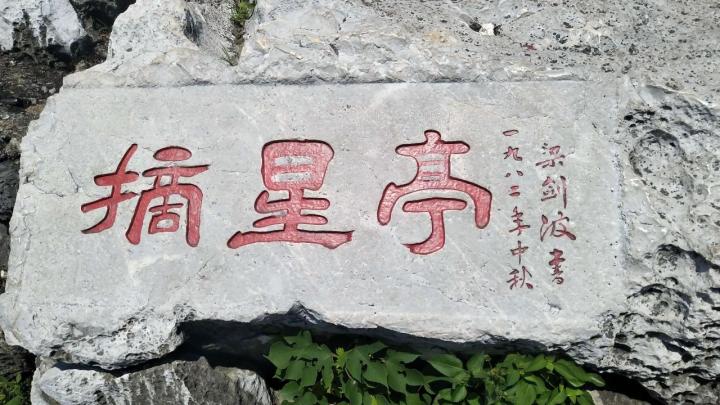 摘星亭
一九八二年中秋
梁剑波書